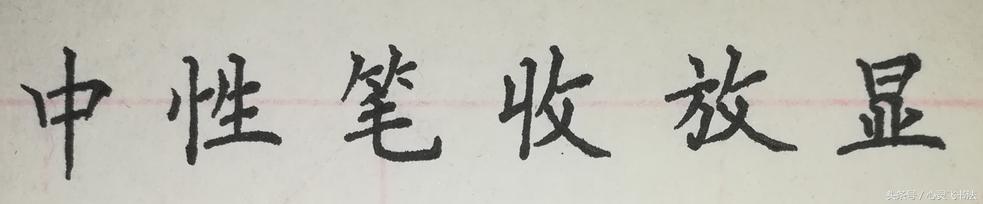 中性笔收放显
头条号/心灵飞书法